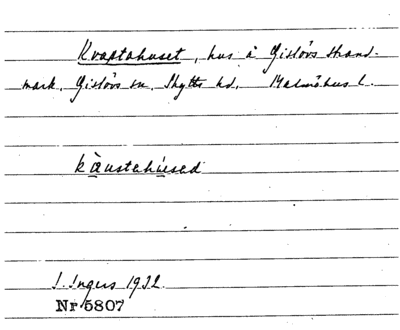 Kvaptahuset, hus å Gislövs strand-
mark, Gislövs sn, Skytts hd, Malmöhus l.
kaustahused
I. Ingers 1932.
Nr 5807